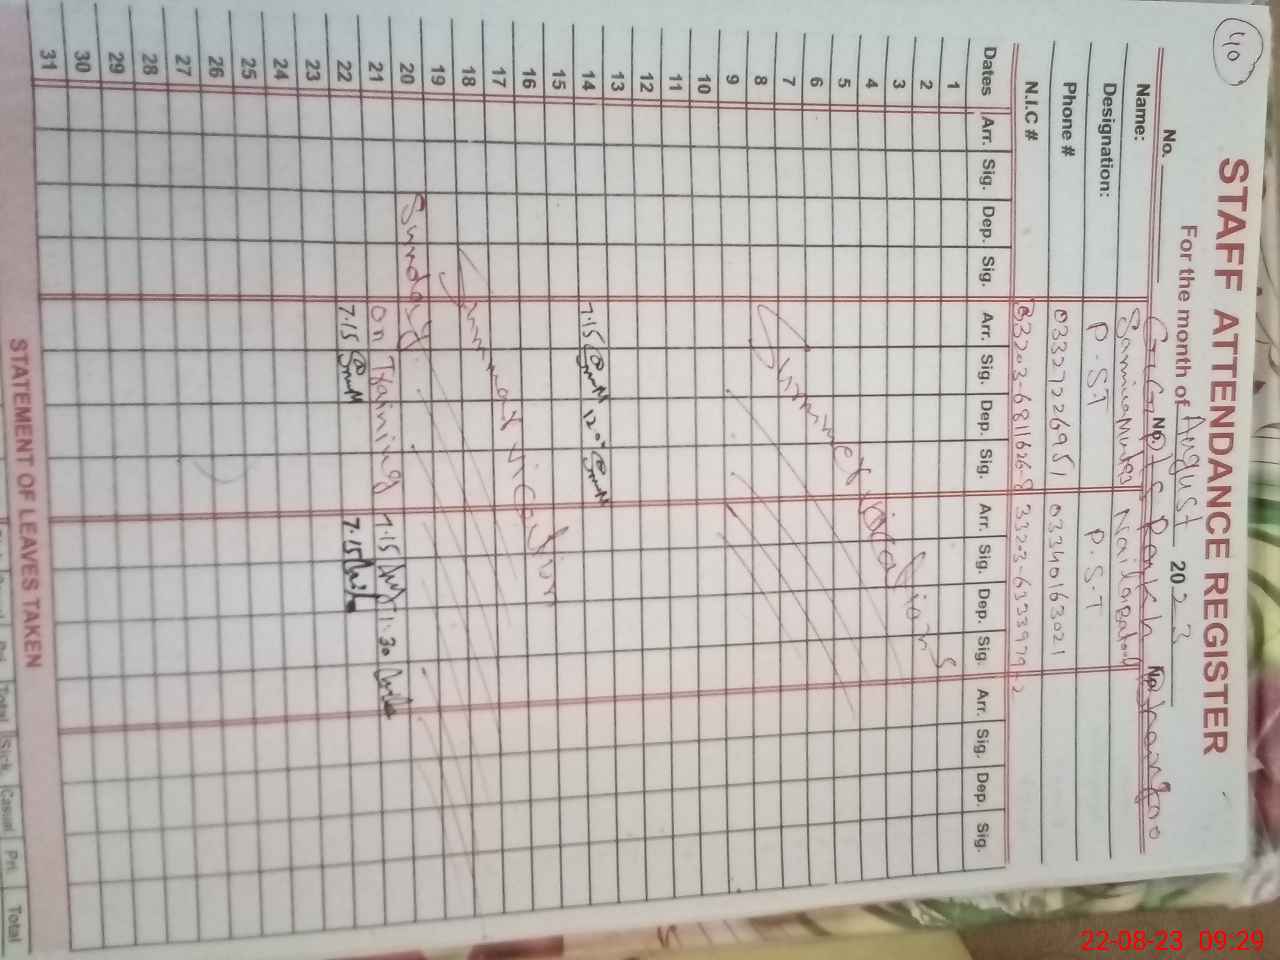 40
STAFF ATTENDANCE REGISTER
For the month of August 2023
No. No. No.
Name: Samina Mumtaz Naila Batool
Designation: P.ST P.S.T
Phone # 03327226951 03340163021
N.I.C # 33203-6811626-8 33203-6333979-2
Dates Arr. Sig. Dep. Sig. Arr. Sig. Dep. Sig. Arr. Sig. Dep. Sig. Arr. Sig. Dep. Sig.
1
2
3
4
5
6
7
8
Summer vacations
9
10
11
12
13
14 7.15 12.00
15
16
17
18
Summer vication
19
20 Sunday
21 on Training 7.15 11.30
22 7.15 7.15
23
24
25
26
27
28
29
30
31
STATEMENT OF LEAVES TAKEN
Total Sick Casual Pri. Total
22-08-23 09:29